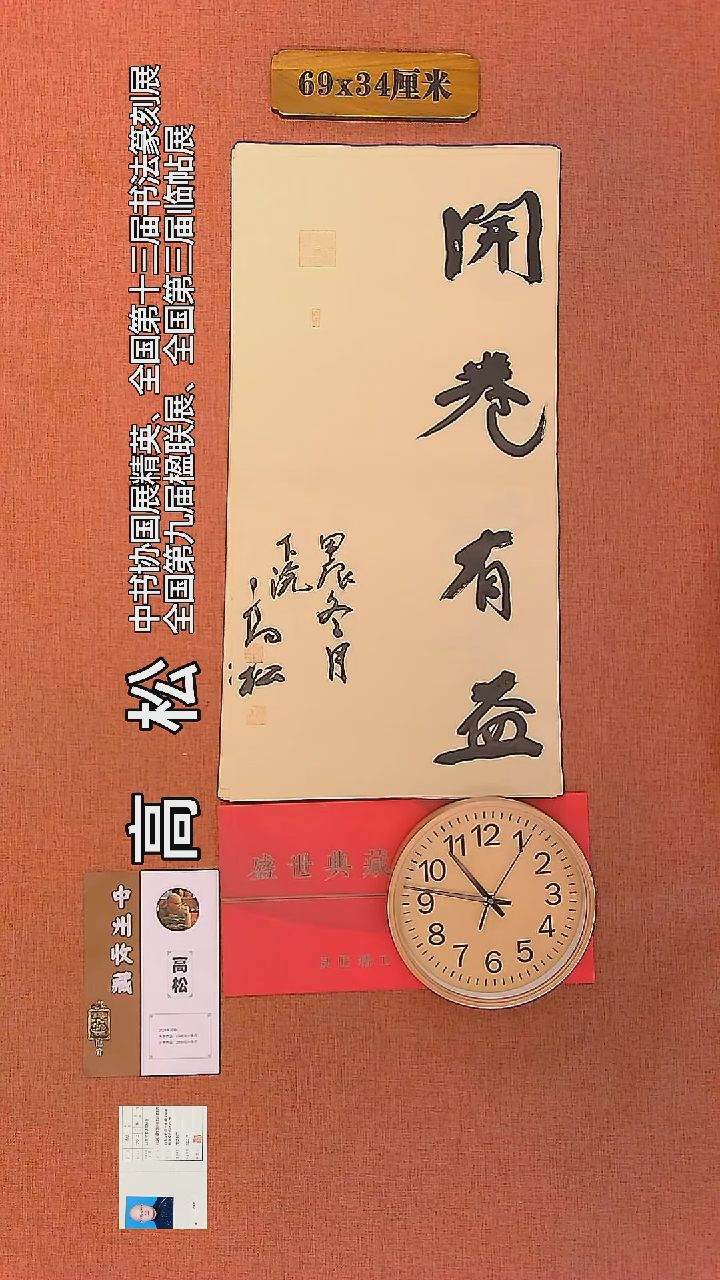 69x34厘米
開卷有益
甲辰冬月
下浣
高松
中书协国展精英、全国第十三届书法篆刻展
全国第九届楹联展、全国第三届临帖展
高 松
盛世典藏
12
1
2
3
4
5
6
7
8
9
10
11
高松